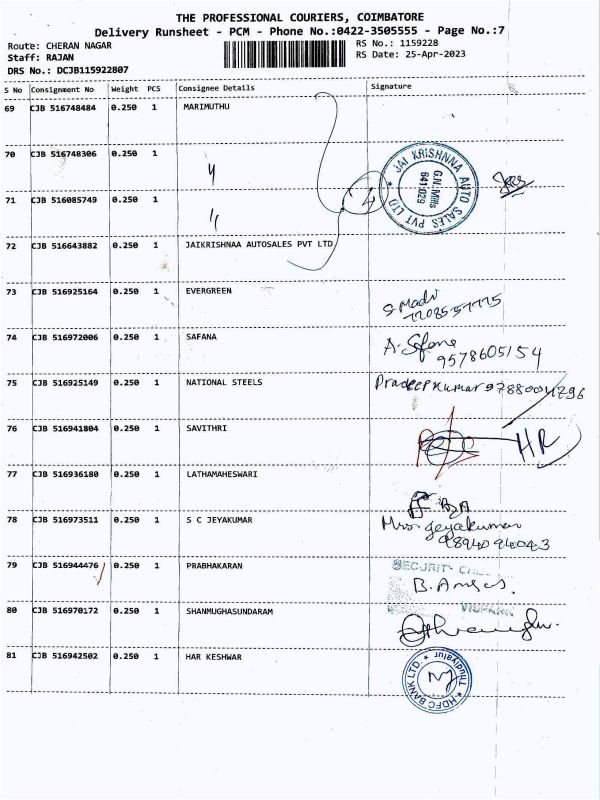 THE PROFESSIONAL COURIERS, COIMBATORE
Delivery Runsheet - PCM - Phone No.:0422-3505555 - Page No.:7
Route: CHERAN NAGAR RS No.: 1159228
Staff: RAJAN RS Date: 25-Apr-2023
DRS No.: DCJB115922807
S No Consignment No Weight PCS Consignee Details Signature
69 CJB 516748484 0.250 1 MARIMUTHU
70 CJB 516748306 0.250 1 "
JAI KRISHNNA AUTO SALES PVT LTD ★
G.N.Mills
641 029
4
71 CJB 516085749 0.250 1 "
72 CJB 516643882 0.250 1 JAIKRISHNAA AUTOSALES PVT LTD
73 CJB 516925164 0.250 1 EVERGREEN
S Madv
74 CJB 516972006 0.250 1 SAFANA
A. Safana
9578605154
75 CJB 516925149 0.250 1 NATIONAL STEELS Pradeep Kumar 9788004296
76 CJB 516941804 0.250 1 SAVITHRI
HR
77 CJB 516936180 0.250 1 LATHAMAHESWARI
78 CJB 516973511 0.250 1 S C JEYAKUMAR Mrs. Jeyakumar
9894094043
79 CJB 516944476 0.250 1 PRABHAKARAN
SECURITY
B.
80 CJB 516970172 0.250 1 SHANMUGHASUNDARAM
81 CJB 516942502 0.250 1 HAR KESHWAR
HDFC BANK LTD. ★ Thudiyalur ★